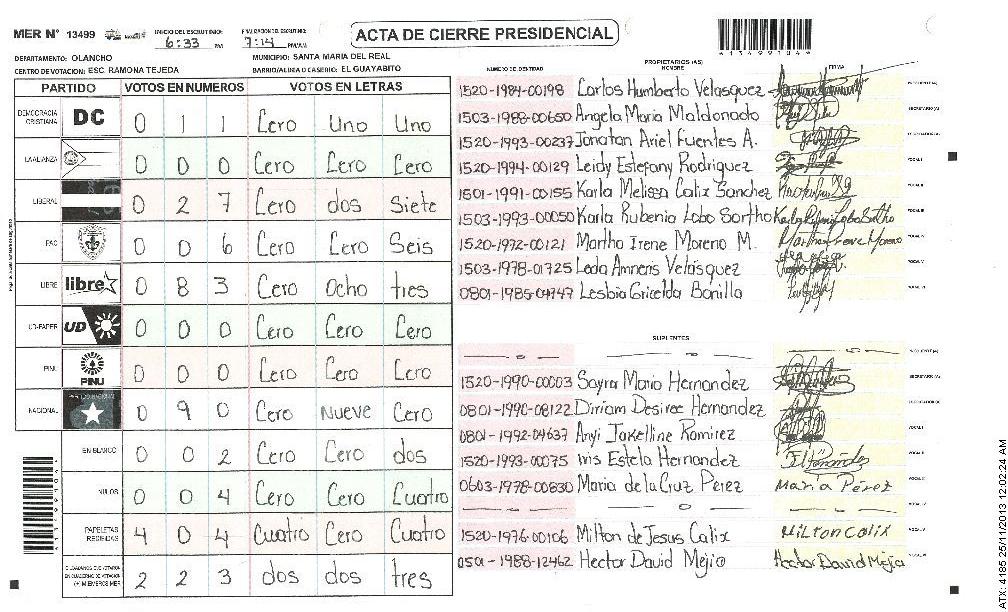 MER Nº 13499
INICIO DEL ESCRUTINIO: 6:33 PM
FINALIZACION DEL ESCRUTINIO: 7:14 PM/AM
ACTA DE CIERRE PRESIDENCIAL
134991044
DEPARTAMENTO: OLANCHO
MUNICIPIO: SANTA MARIA DEL REAL
CENTRO DE VOTACION: ESC. RAMONA TEJEDA
BARRIO/ALDEA O CASERIO: EL GUAYABITO
PARTIDO VOTOS EN NUMEROS VOTOS EN LETRAS
DEMOCRACIA CRISTIANA DC 0 1 1 Cero Uno Uno
LA ALIANZA 0 0 0 Cero Cero Cero
LIBERAL 0 2 7 Cero dos Siete
PAC 0 0 6 Cero Cero Seis
LIBRE libre 0 8 3 Cero Ocho tres
UD-FAPER UD 0 0 0 Cero Cero Cero
PINU PINU 0 0 0 Cero Cero Cero
NACIONAL 0 9 0 Cero Nueve Cero
EN BLANCO 0 0 2 Cero Cero dos
NULOS 0 0 4 Cero Cero Cuatro
PAPELETAS RECIBIDAS 4 0 4 Cuatro Cero Cuatro
CIUDADANOS QUE VOTARON EN CUADERNO DE VOTACION (+) MIEMBROS MER 2 2 3 dos dos tres
PROPIETARIOS (AS)
NUMERO DE IDENTIDAD NOMBRE FIRMA
1520-1984-00198 Carlos Humberto Velasquez PRESIDENTE(A)
1503-1988-00650 Angela Maria Maldonado SECRETARIO(A)
1520-1993-00237 Jonatan Ariel Fuentes A. ESCRUTADOR(A)
1520-1994-00129 Leidy Estefany Rodriguez VOCAL I
1501-1991-00155 Karla Melissa Calix Sanchez VOCAL II
1503-1993-00050 Karla Rubenia Lobo Sortho Karla Rubenia Lobo Sortho VOCAL III
1520-1972-00121 Martha Irene Moreno M. Martha Irene Moreno VOCAL IV
1503-1978-01725 Leda Velásquez VOCAL V
0801-1985-04747 Lesbia Gricelda Bonilla VOCAL VI
SUPLENTES
PRESIDENTE(A)
1520-1990-00003 Sayra Maria Hernandez SECRETARIO(A)
0801-1990-08122 Dirriam Desiree Hernandez ESCRUTADOR(A)
0801-1992-04637 Anyi Jakelline Ramirez VOCAL I
1520-1993-00075 Iris Estela Hernandez VOCAL II
0603-1978-00830 Maria de la Cruz Perez María Pérez VOCAL III
VOCAL IV
1520-1976-00106 Milton de Jesus Calix Milton Calix VOCAL V
0501-1988-12462 Hector David Mejia Hector David Mejia VOCAL VI
ATX: 4185 25/11/2013 12:02:24 AM